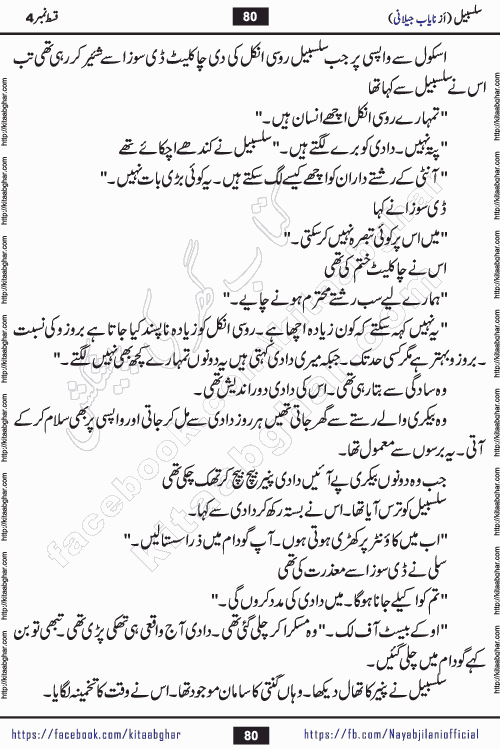 سلسبیل (از نایاب جیلانی)
80
قسط نمبر 4
اسکول سے واپسی پر جب سلسبیل روسی انکل کی دی چاکلیٹ ڈی سوزا سے شئیر کر رہی تھی تب
اس نے سلسبیل سے کہا تھا
"تمہارے روسی انکل اچھے انسان ہیں۔"
"پتہ نہیں۔ دادی کو برے لگتے ہیں۔" سلسبیل نے کندھے اچکائے تھے
"آنٹی کے رشتے داران کو اچھے کیسے لگ سکتے ہیں۔ یہ کوئی بڑی بات نہیں۔"
ڈی سوزا نے کہا
"میں اس پر کوئی تبصرہ نہیں کر سکتی۔"
اس نے چاکلیٹ ختم کی تھی
"ہمارے لیے سب رشتے محترم ہونے چاہیے۔"
"یہ نہیں کہہ سکتے کہ کون زیادہ اچھا ہے۔ روسی انکل کو زیادہ ناپسند کیا جاتا ہے بروز و کی نسبت
۔ بروز و بہتر ہے مگر کسی حد تک۔ جبکہ میری دادی کہتی ہیں یہ دونوں تمہارے کچھ بھی نہیں لگتے۔"
وہ سادگی سے بتا رہی تھی۔ اس کی دادی دور اندیش تھی۔
وہ بیکری والے رستے سے گھر جاتی تھیں ہر روز دادی سے مل کر جاتی اور واپسی پر بھی سلام کر کے
آتی۔ یہ برسوں سے معمول تھا۔
جب وہ دونوں بیکری پے آئیں دادی پنیر بیچ بیچ کر تھک چکی تھی
سلسبیل کو ترس آیا تھا۔ اس نے بستہ رکھ کر دادی سے کہا۔
"اب میں کاؤنٹر پر کھڑی ہوتی ہوں۔ آپ گودام میں ذرا ستا لیں۔"
سلی نے ڈی سوزا سے معذرت کی تھی
"تم کو اکیلے جانا ہوگا۔ میں دادی کی مدد کروں گی۔"
"او کے بیسٹ آف لک۔" وہ مسکرا کر چلی گئی تھی۔ دادی آج واقعی ہی تھکی پڑی تھی۔ تبھی تو بن
کہے گودام میں چلی گئیں۔
سلسبیل نے پنیر کا تھال دیکھا۔ وہاں گنتی کا سامان موجود تھا۔ اس نے وقت کا تخمینہ لگایا۔
https://facebook.com/kitaabghar
80
https://fb.com/Nayabjilaniofficial
http://kitaabghar.com
کتاب گھر کی پیشکش
facebook.com/kitaabghar
kitaabghar.com